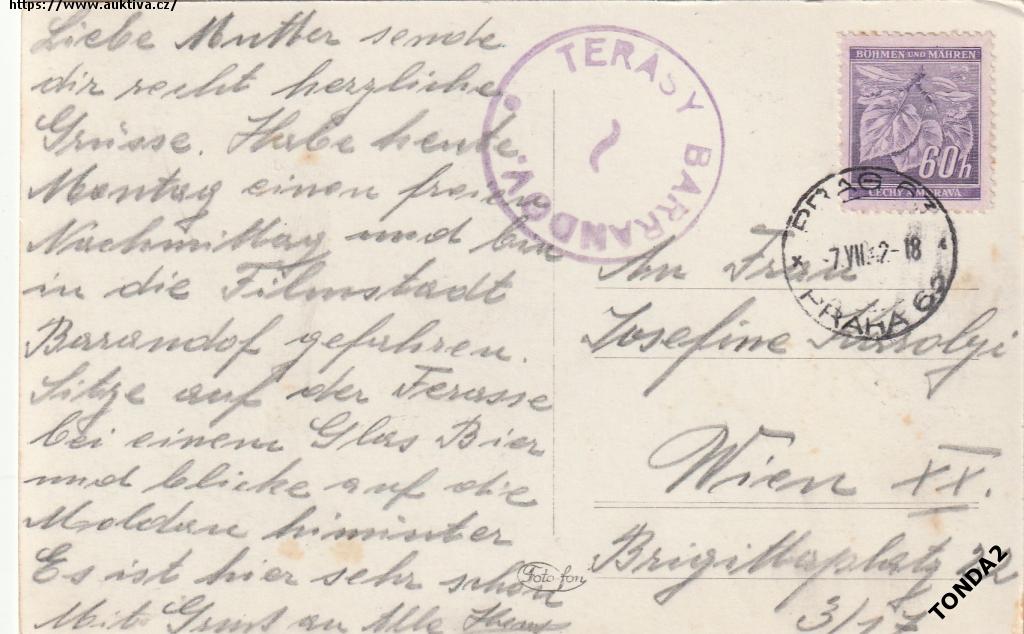 https://www.auktiva.cz/
Liebe Mutter sende
dir recht herzliche
Grüsse. Habe heute
Montag einen freien
Nachmittag und bin
in die Filmstadt
Barandof gefahren.
Sitze auf der Terasse
bei einem Glas Bier
und blicke auf die
Moldau hinunter
Es ist hier sehr schön
Mit Gruss an Alle
TERASY BARRANDOV.
BÖHMEN UND MÄHREN
60h
ČECHY A MORAVA
PRAG 62
-7.VII.42-18
PRAHA 62
An Frau
Josefine Karolyi
Wien XX.
Brigittaplatz 22
3/17
Foto-fon
TONDA2